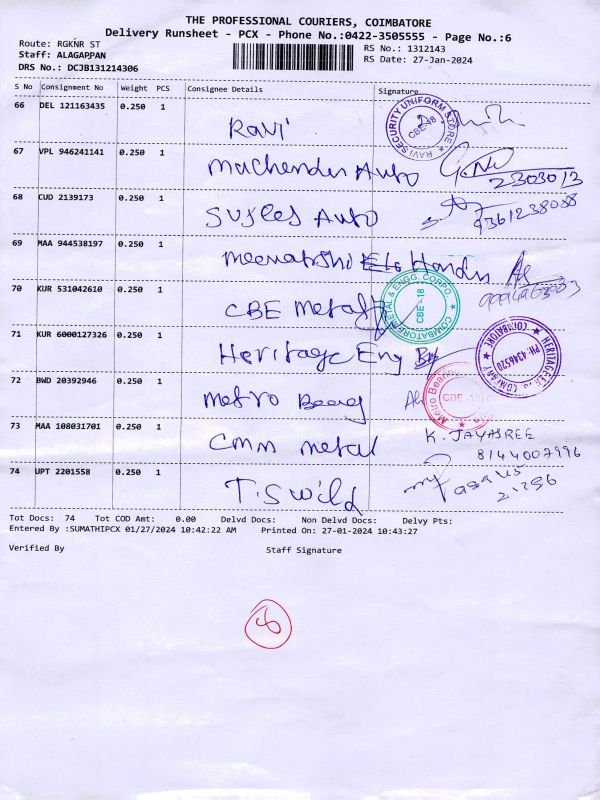 THE PROFESSIONAL COURIERS, COIMBATORE
Delivery Runsheet - PCX - Phone No.:0422-3505555 - Page No.:6
Route: RGKNR ST
RS No.: 1312143
Staff: ALAGAPPAN
RS Date: 27-Jan-2024
DRS No.: DCJB131214306
S No Consignment No Weight PCS Consignee Details Signature
66 DEL 121163435 0.250 1
Ravi
RAVI SECURITY UNIFORM STORE
CBE-18
67 VPL 946241141 0.250 1
Auto
68 CUD 2139173 0.250 1
Auto
9361238088
69 MAA 944538197 0.250 1
70 KUR 531042610 0.250 1
CBE Metal
COIMBATORE METAL & ENGG. CORPO
CBE-18
71 KUR 6000127326 0.250 1
Heritage Eng
COIMBATORE
PH: 4346520
HERITAGE
COMPANY
72 BWD 20392946 0.250 1
Metro
Metro
CBE -18
73 MAA 108031701 0.250 1
Cmm metal
K. JAYASREE
8144007996
74 UPT 2201558 0.250 1
T.S wild
Tot Docs: 74 Tot COD Amt: 0.00 Delvd Docs: Non Delvd Docs: Delvy Pts:
Entered By :SUMATHIPCX 01/27/2024 10:42:22 AM Printed On: 27-01-2024 10:43:27
Verified By Staff Signature
8